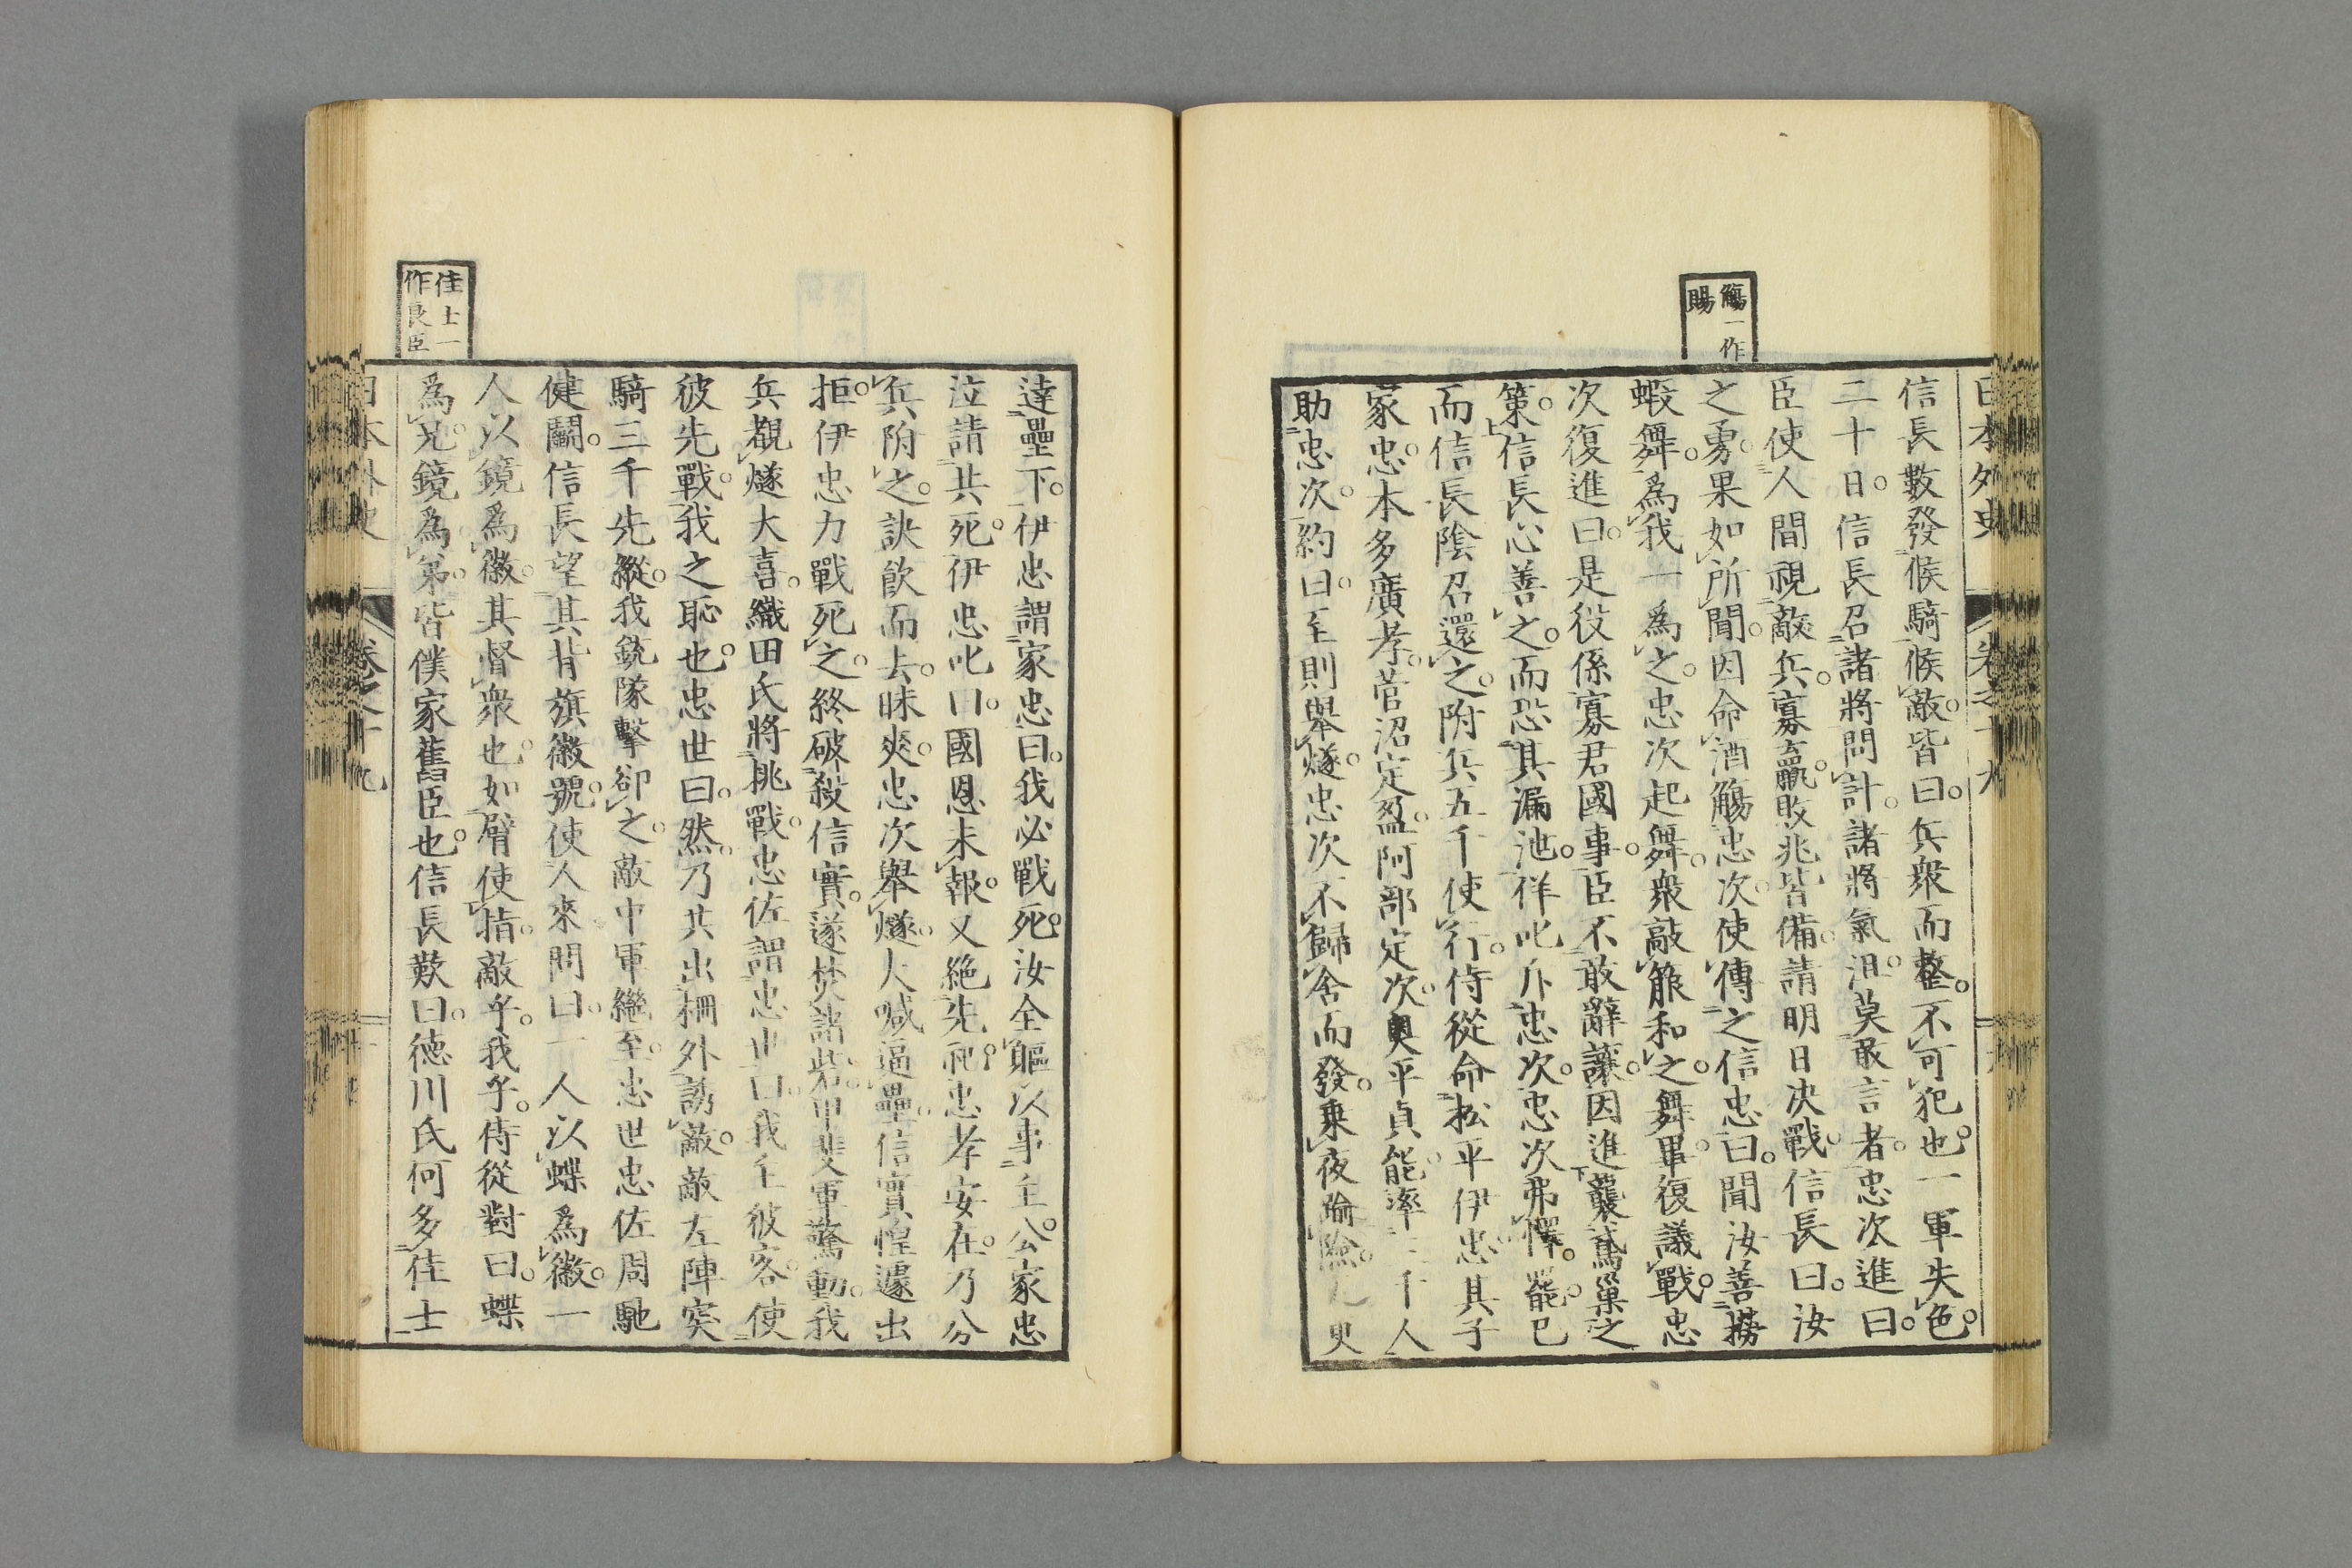 日本外史 卷之十九
觴一作
賜
信長數發候騎候敵。皆曰。兵衆而整。不可犯也。一軍失色。
二十日。信長召諸將問計。諸將氣沮。莫敢言者。忠次進曰。
臣使人間視敵兵。寡羸。敗兆皆備。請明日決戰。信長曰。汝
之勇。果如所聞。因命酒觴忠次。使傳之信忠。曰。聞汝善撈
蝦舞。爲我一爲之。忠次起舞。衆敲箙和之。舞畢。復議戰。忠
次復進曰。是役係寡君國事。臣不敢辭讓。因進襲鳶巢之
策。信長心善之。而恐其漏池。佯叱斥忠次。忠次弗懌。罷已
而信長陰召還之。附兵五千使行。侍從命松平伊忠。其子
家忠。本多廣孝。菅沼定盈。阿部定次。奧平貞能。率三千人
助忠次。約曰。至則舉燧。忠次不歸舍而發。乘夜踰險。
達壘下。伊忠謂家忠曰。我必戰死。汝全軀以事主公。家忠
泣請共死。伊忠叱曰。國恩未報。又絶先祀。忠孝安在。乃分
兵附之。訣飮而去。昧爽。忠次舉燧。大喊逼壘。信實惶遽出
拒。伊忠力戰死之。終破殺信實。遂焚諸砦。甲斐軍驚動。我
兵覩燧大喜。織田氏將挑戰。忠佐謂忠世曰。我主彼客。使
彼先戰。我之恥也。忠世曰。然。乃共出柵外誘敵。敵左陣突
騎三千先縱。我銃隊擊卻之。敵中軍繼至。忠世忠佐周馳
健鬭。信長望其背旗徽號。使人來問曰。一人以蝶爲徽。一
人以鏡爲徽。其督衆也。如臂使指。敵乎。我乎。侍從對曰。蝶
爲兄。鏡爲弟。皆僕家舊臣也。信長歎曰。德川氏何多佳士
佳士一
作良臣
日本外史 卷之十九